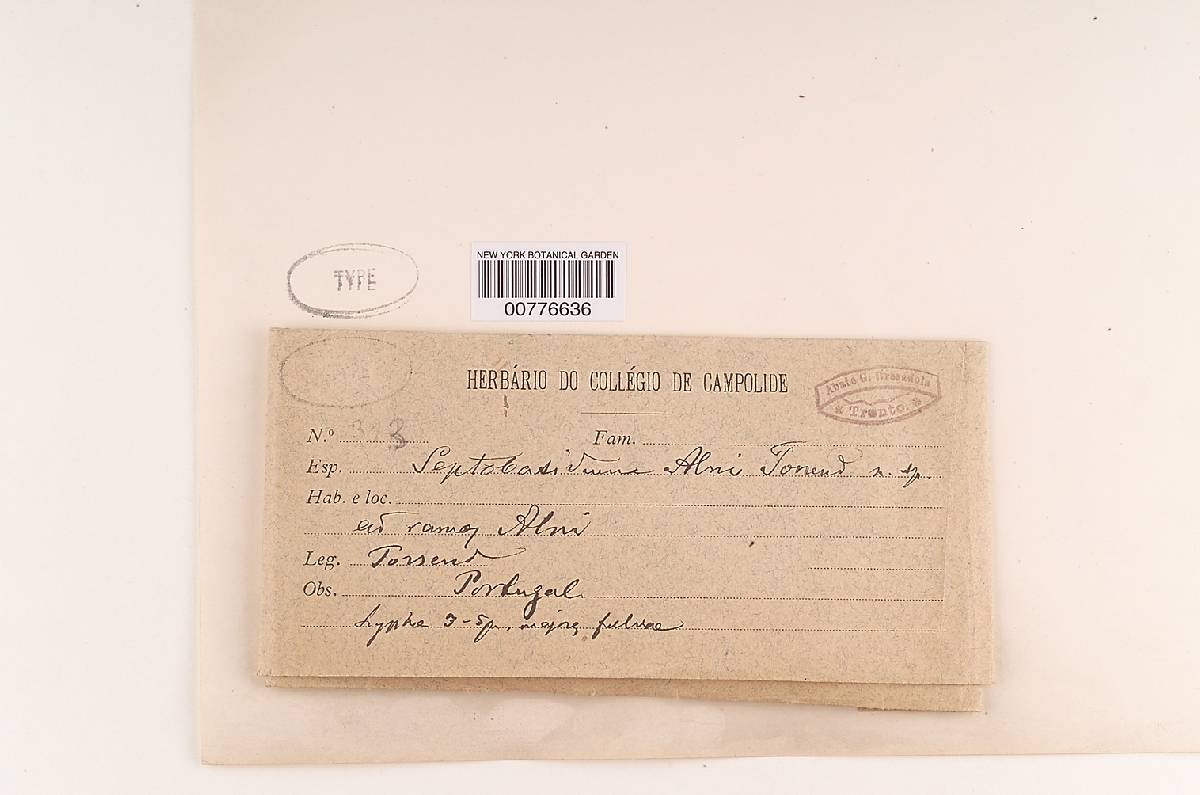 TYPE
NEW YORK BOTANICAL GARDEN
00776636
HERBÁRIO DO COLLÉGIO DE CAMPOLIDE
Abate G. Bresadola
Trento.
N.º 3 3 Fam.
Esp. Septobasidium Alni Torrend n. sp.
Hab. e loc.
ad ramos Alni
Leg. Torrend
Obs. Portugal.
hyphae 3-5µ, fulvae